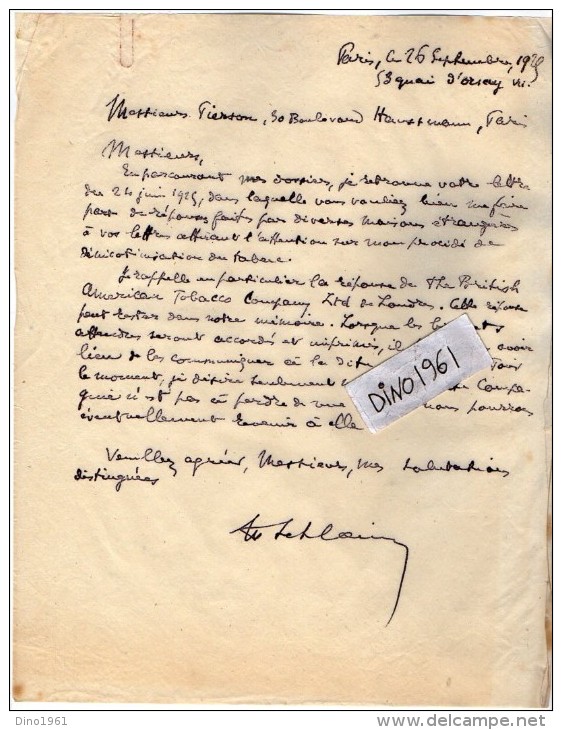 Paris, le 26 Septembre, 1925
53 quai d'orsay VII.
Messieurs Tierson, 30 Boulevard Haussmann, Paris
Messieurs,
En parcourant mes dossiers, je retrouve votre lettre
du 24 juin 1925, dans laquelle vous vouliez bien me faire
part de réponses faits par diverses maisons étrangères
à vos lettres attirant l'attention sur mon procédé de
dénicotinisation du tabac.
Je rappelle en particulier la réponse de The British
American Tobacco Company Ltd de Londres. Cette réponse
peut rester dans notre mémoire. Lorsque les
attendus seront accordés et imprimés, il avoir
lieu de les communiquer à la
le moment, je désire seulement Compa-
gnie n'est pas à perdre de vue nous pourrons
éventuellement revenir à elle
Veuillez agréer, Messieurs, mes salutations
distinguées
DINO1961
Dino1961
www.delcampe.net